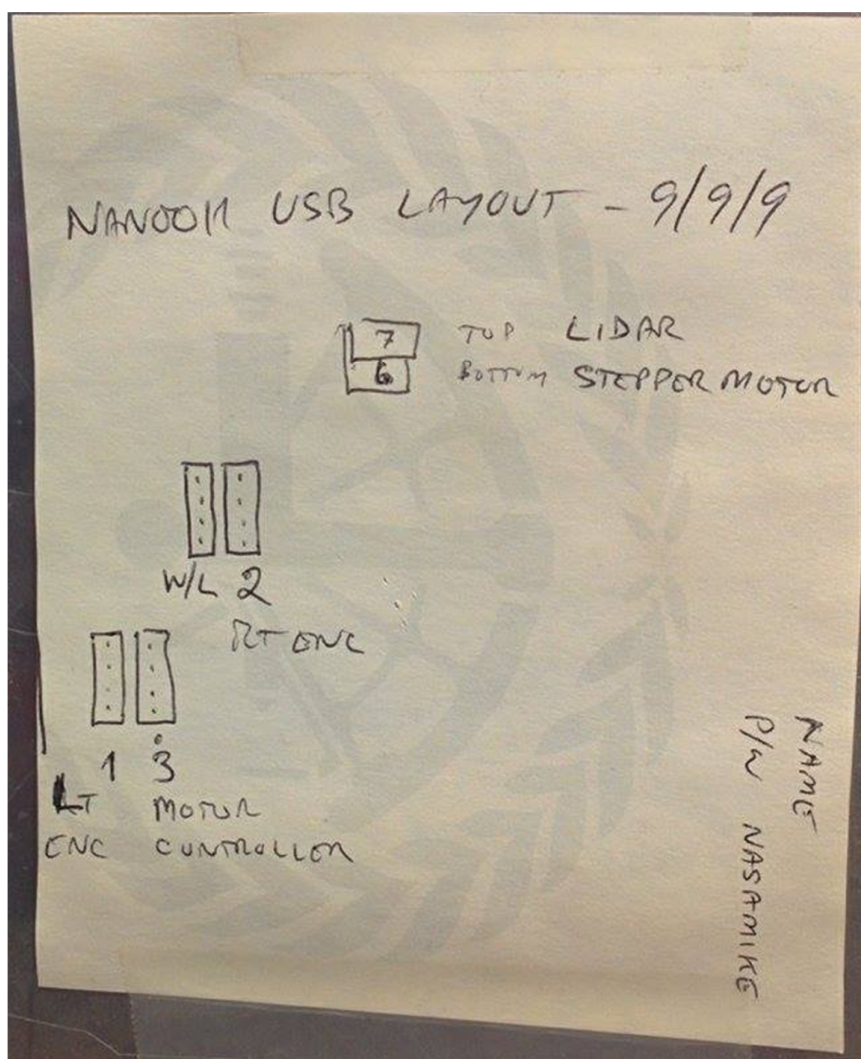 NANOOK USB LAYOUT - 9/9/9
7 TOP LIDAR
6 BOTTOM STEPPER MOTOR
W/L 2
RT ENC
1 3
LT MOTOR
ENC CONTROLLER
NAME
P/W NASAMIKE